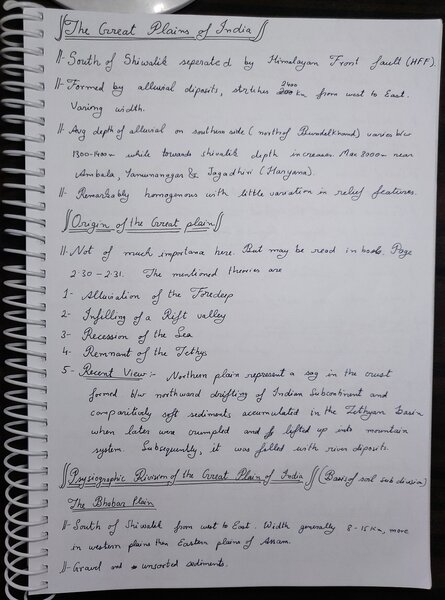 The Great Plains of India
11- South of Shiwalik seperated by Himalayan Front fault (HFF).
11- Formed by alluvial deposits, strtches 2400 km from west to East.
Variong width.
11- Avg depth of alluvial on southern side (north of Bundelkhand) varies b/w
1300-1400m while towards shivalik depth increases. Max 8000m near
Ambala, Yamunanagar & Jagadhiri (Haryana).
11- Remarkably homogenous with little variation in relief features.
Origin of the Great plain
11- Not of much importance here. But may be read in book. Page
2.30 - 2.31. The mentioned theories are
1- Alluviation of the Foredeep
2- Infilling of a Rift valley
3- Recession of the Sea
4- Remnant of the Tethys
5- Recent View:- Northern plain represent a sag in the crust
formed b/w northward drifting of Indian Subcontinent and
comparitively soft sediments accumulated in the Tethyan Basin
when later were crumpled and lefted up into mountain
system. Subsequently, it was filled with river deposits.
Psysiographic Division of the Great Plain of India (Basis of soil sub division)
The Bhabar Plain
11- South of Shiwalik from west to East. Width generally 8-15 Km, more
in western plains then Eastern plains of Assam.
11- Gravel and unsorted sediments.